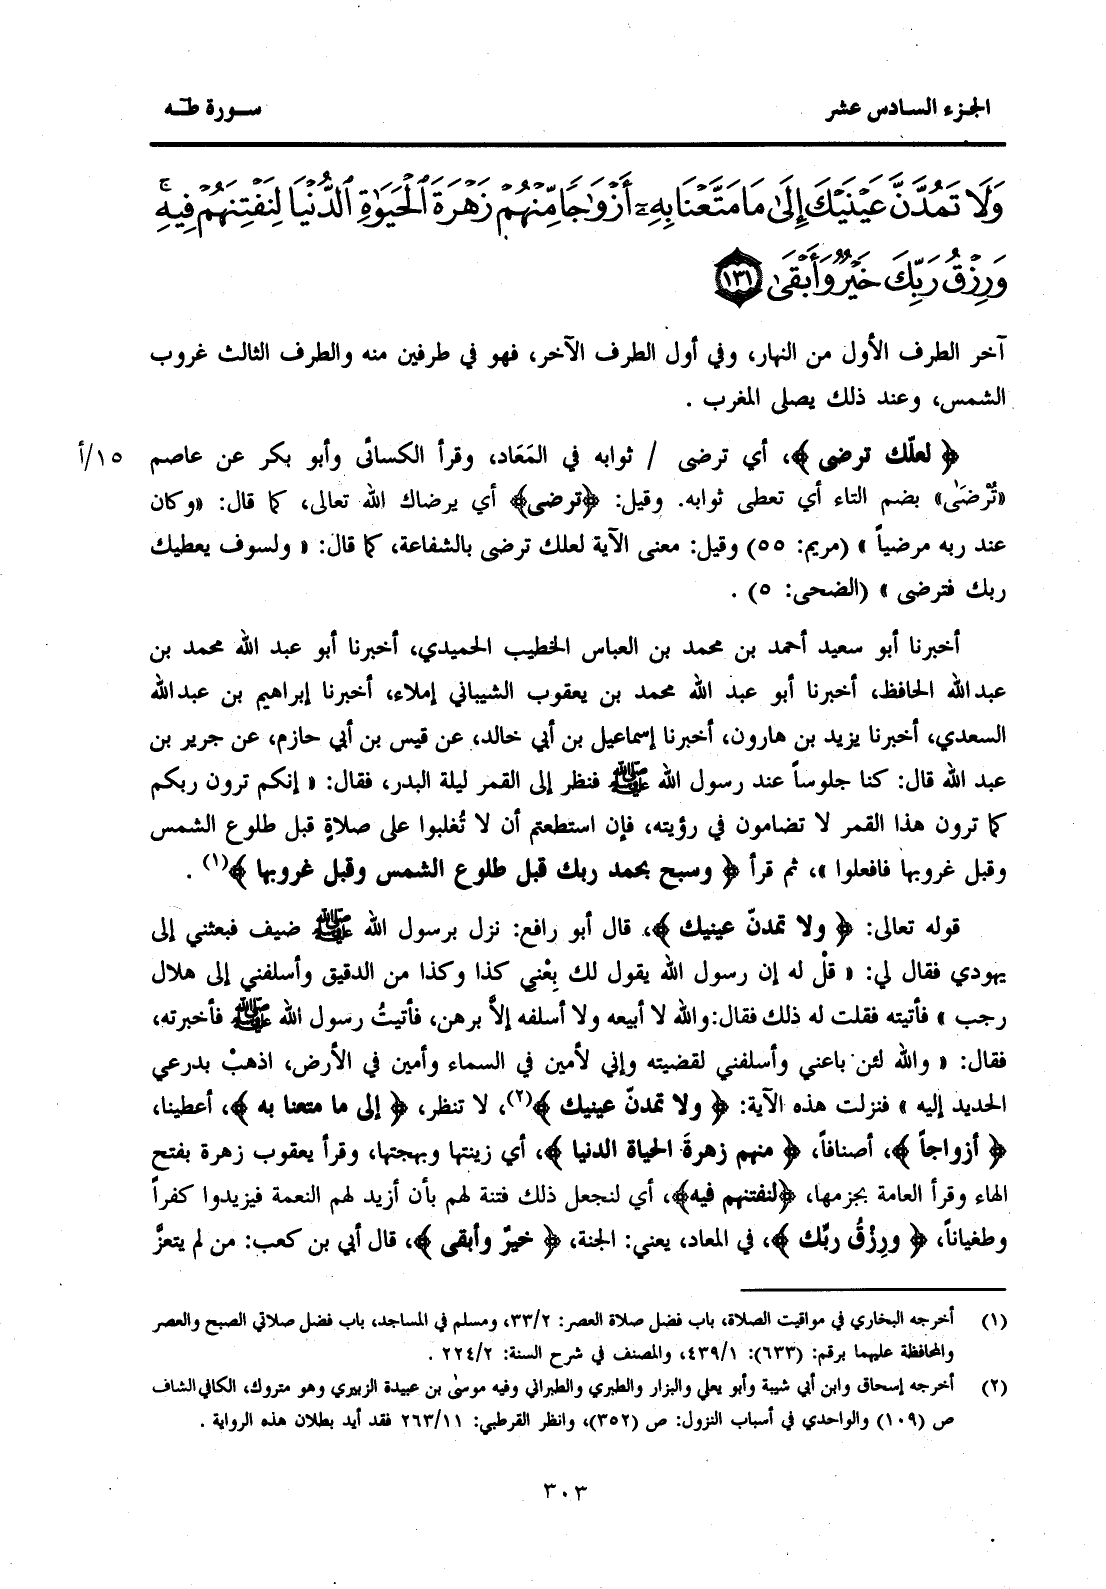 الجزء السادس عشر
سورة طه
وَلَا تَمُدَّنَّ عَيْنَيْكَ إِلَىٰ مَا مَتَّعْنَا بِهِۦٓ أَزْوَٰجًا مِّنْهُمْ زَهْرَةَ ٱلْحَيَوٰةِ ٱلدُّنْيَا لِنَفْتِنَهُمْ فِيهِ ۚ
وَرِزْقُ رَبِّكَ خَيْرٌ وَأَبْقَىٰ ١٣١
آخر الطرف الأول من النهار، وفي أول الطرف الآخر، فهو في طرفين منه والطرف الثالث غروب
الشمس، وعند ذلك يصلى المغرب .
﴿ لعلّك ترضى ﴾، أي ترضى / ثوابه في المَعَاد، وقرأ الكسائى وأبو بكر عن عاصم ١٥/أ
«تُرْضَىٰ» بضم التاء أي تعطى ثوابه. وقيل: ﴿ترضى﴾ أي يرضاك الله تعالى، كما قال: «وكان
عند ربه مرضياً » (مريم: ٥٥) وقيل: معنى الآية لعلك ترضى بالشفاعة، كما قال: « ولسوف يعطيك
ربك فترضى » (الضحى: ٥) .
أخبرنا أبو سعيد أحمد بن محمد بن العباس الخطيب الحميدي، أخبرنا أبو عبد الله محمد بن
عبدالله الحافظ، أخبرنا أبو عبد الله محمد بن يعقوب الشيباني إملاء، أخبرنا إبراهيم بن عبدالله
السعدي، أخبرنا يزيد بن هارون، أخبرنا إسماعيل بن أبي خالد، عن قيس بن أبي حازم، عن جرير بن
عبد الله قال: كنا جلوساً عند رسول الله ﷺ فنظر إلى القمر ليلة البدر، فقال: « إنكم ترون ربكم
كما ترون هذا القمر لا تضامون في رؤيته، فإن استطعتم أن لا تُغلبوا على صلاةٍ قبل طلوع الشمس
وقبل غروبها فافعلوا »، ثم قرأ ﴿ وسبح بحمد ربك قبل طلوع الشمس وقبل غروبها ﴾(١) .
قوله تعالى: ﴿ ولا تمدنّ عينيك ﴾، قال أبو رافع: نزل برسول الله ﷺ ضيف فبعثني إلى
يهودي فقال لي: « قلْ له إن رسول الله يقول لك بِعْني كذا وكذا من الدقيق وأسلفني إلى هلال
رجب » فأتيته فقلت له ذلك فقال: والله لا أبيعه ولا أسلفه إلاَّ برهن، فأتيتُ رسول الله ﷺ فأخبرته،
فقال: « والله لئن باعني وأسلفني لقضيته وإني لأمين في السماء وأمين في الأرض، اذهبْ بدرعي
الحديد إليه » فنزلت هذه الآية: ﴿ ولا تمدنّ عينيك ﴾(٢)، لا تنظر، ﴿ إلى ما متعنا به ﴾، أعطينا،
﴿ أزواجاً ﴾، أصنافاً، ﴿ منهم زهرةَ الحياة الدنيا ﴾، أي زينتها وبهجتها، وقرأ يعقوب زهرة بفتح
الهاء وقرأ العامة بجزمها، ﴿لنفتنهم فيه﴾، أي لنجعل ذلك فتنة لهم بأن أزيد لهم النعمة فيزيدوا كفراً
وطغياناً، ﴿ ورِزْقُ ربِّك ﴾، في المعاد، يعني: الجنة، ﴿ خيرٌ وأبقى ﴾، قال أبي بن كعب: من لم يتعزَّ
(١) أخرجه البخاري في مواقيت الصلاة، باب فضل صلاة العصر: ٣٣/٢، ومسلم في المساجد، باب فضل صلاتي الصبح والعصر
والمحافظة عليهما برقم: (٦٣٣): ٤٣٩/١، والمصنف في شرح السنة: ٢٢٤/٢ .
(٢) أخرجه إسحاق وابن أبي شيبة وأبو يعلي والبزار والطبري والطبراني وفيه موسىٰ بن عبيدة الزبيري وهو متروك، الكافي الشاف
ص (١٠٩) والواحدي في أسباب النزول: ص (٣٥٢)، وانظر القرطبي: ٢٦٣/١١ فقد أيد بطلان هذه الرواية .
٣٠٣